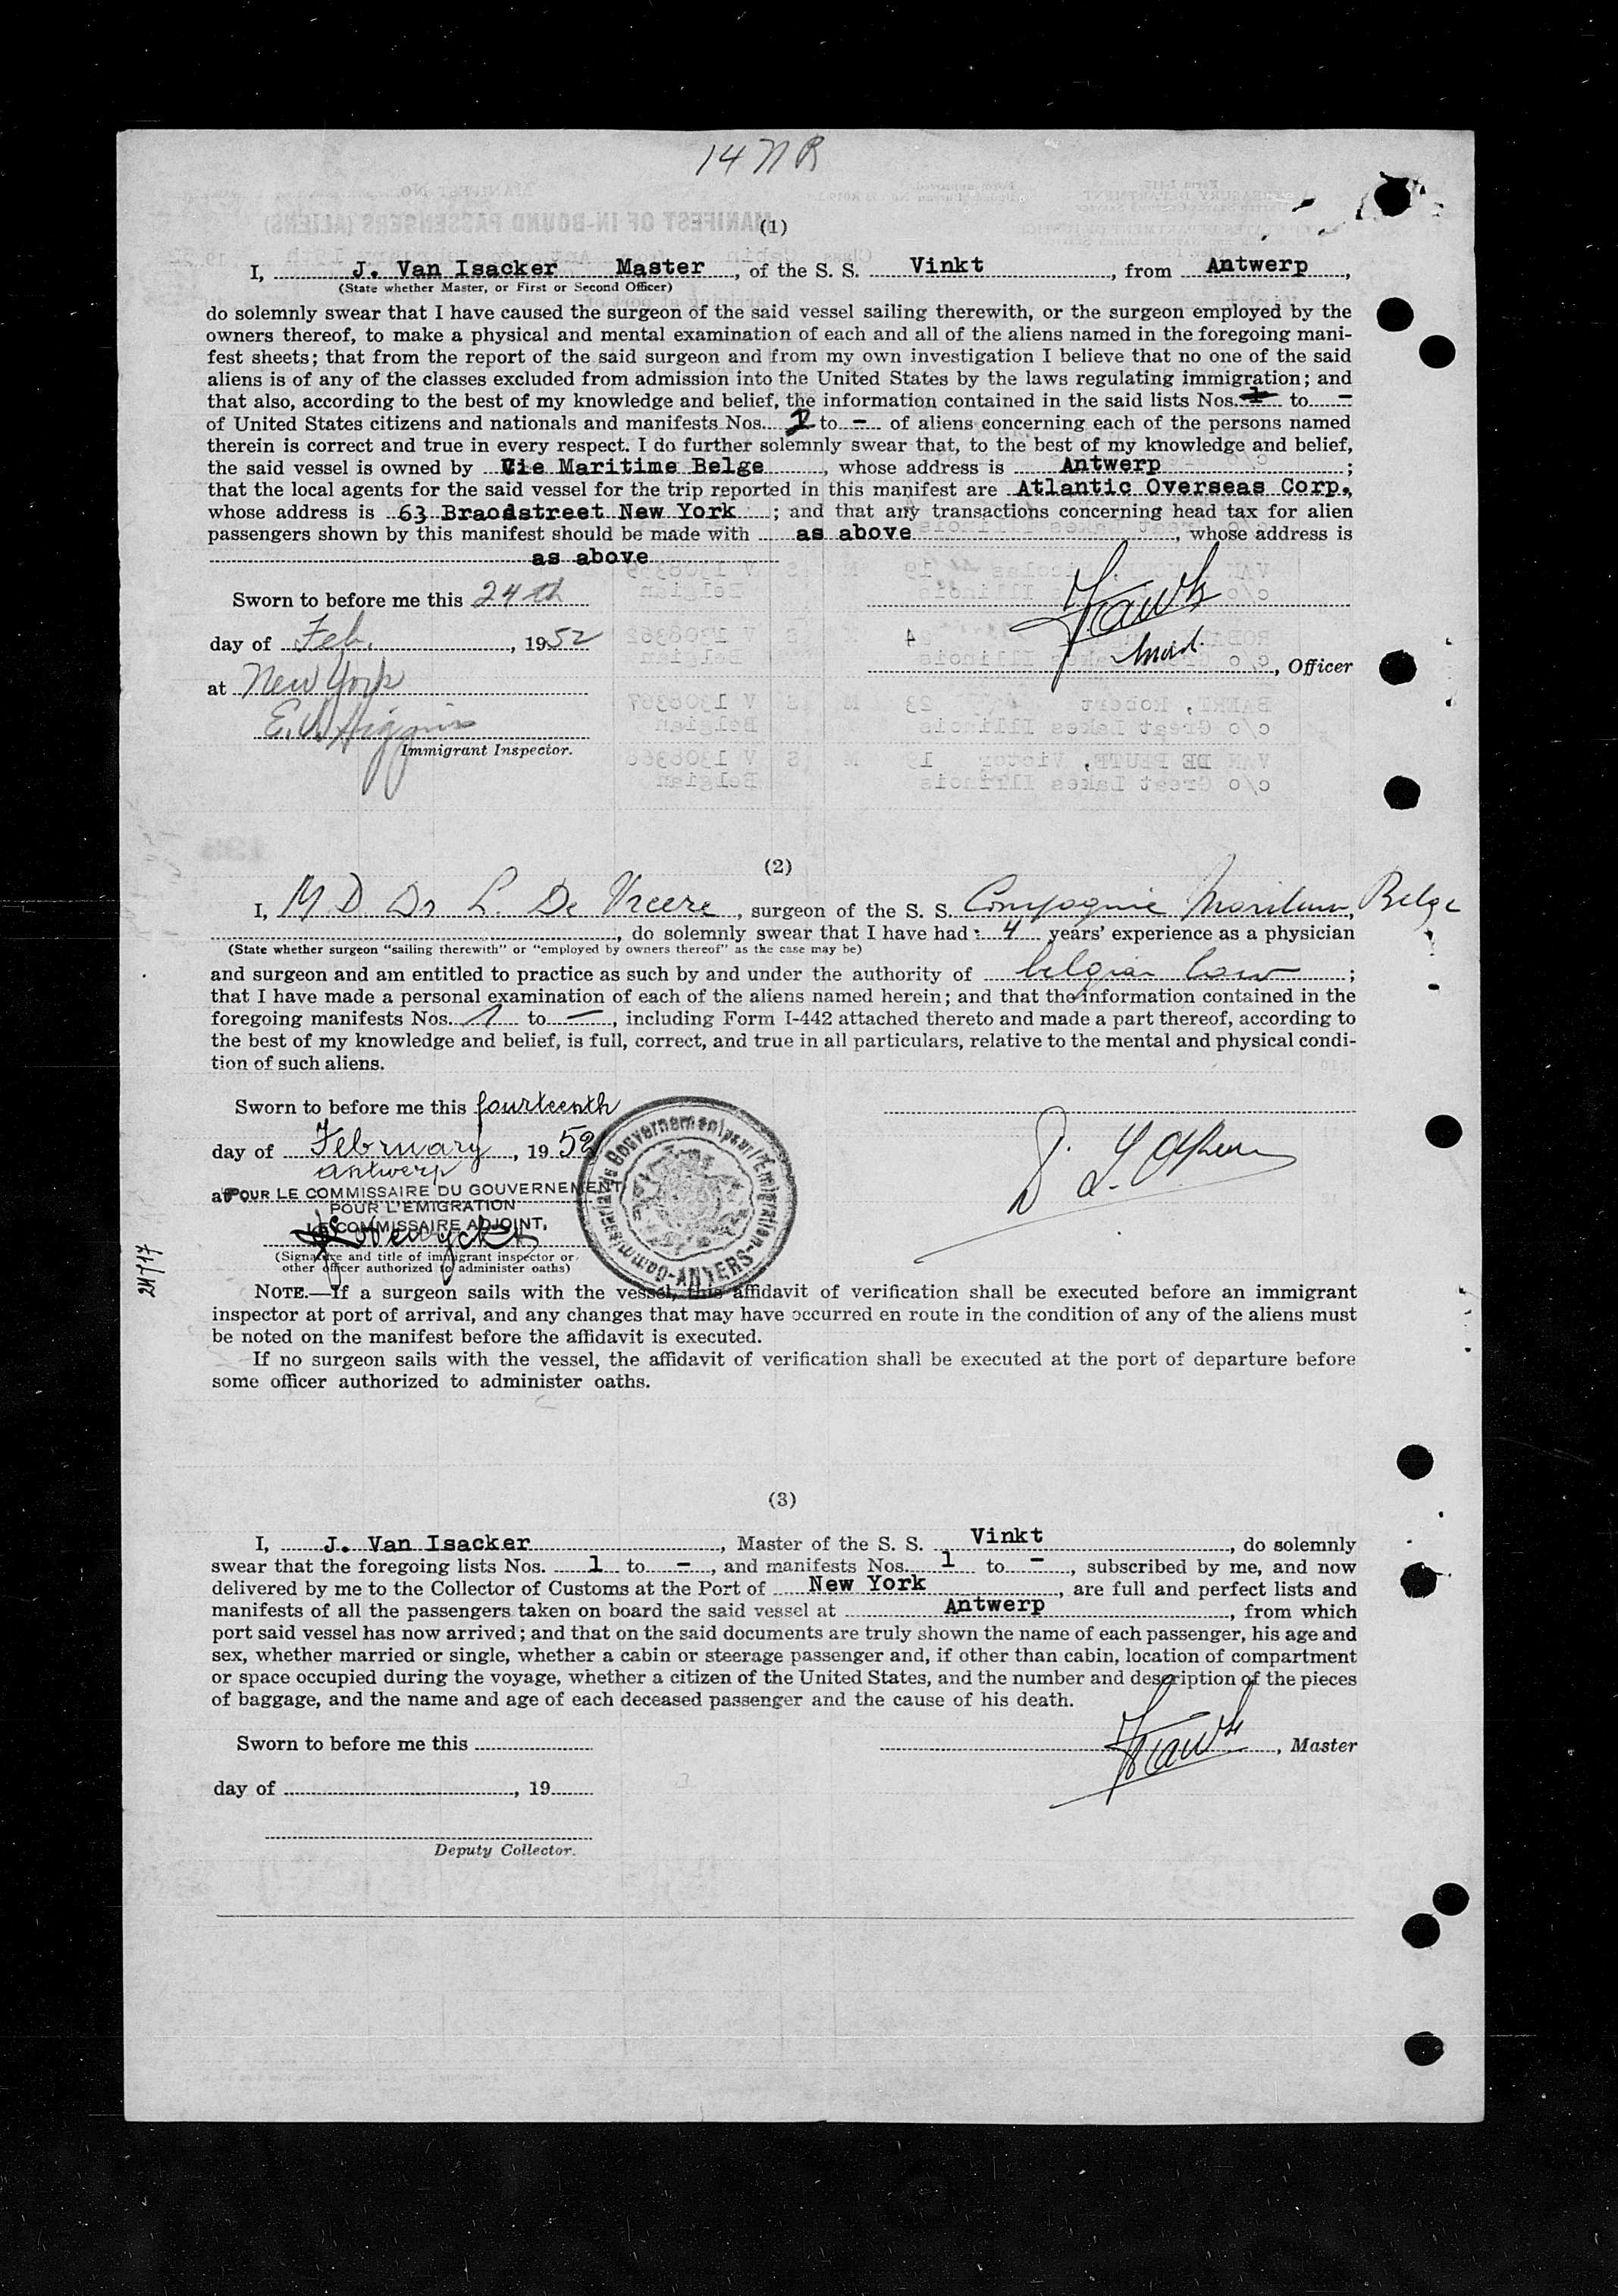 14 NR
(1)
I, J. Van Isacker Master, of the S. S. Vinkt, from Antwerp,
(State whether Master, or First or Second Officer)
do solemnly swear that I have caused the surgeon of the said vessel sailing therewith, or the surgeon employed by the
owners thereof, to make a physical and mental examination of each and all of the aliens named in the foregoing mani-
fest sheets; that from the report of the said surgeon and from my own investigation I believe that no one of the said
aliens is of any of the classes excluded from admission into the United States by the laws regulating immigration; and
that also, according to the best of my knowledge and belief, the information contained in the said lists Nos. 1 to -
of United States citizens and nationals and manifests Nos. 1 to - of aliens concerning each of the persons named
therein is correct and true in every respect. I do further solemnly swear that, to the best of my knowledge and belief,
the said vessel is owned by Cie Maritime Belge, whose address is Antwerp;
that the local agents for the said vessel for the trip reported in this manifest are Atlantic Overseas Corp.,
whose address is 63 Braodstreet New York; and that any transactions concerning head tax for alien
passengers shown by this manifest should be made with as above, whose address is
as above
Sworn to before me this 24th
day of Feb., 1952
, Officer
at New York
E. Higgins
Immigrant Inspector.
(2)
I, M D Dr L. De Vreere, surgeon of the S. S. Compagnie Maritime, Belge
, do solemnly swear that I have had 4 years' experience as a physician
(State whether surgeon "sailing therewith" or "employed by owners thereof" as the case may be)
and surgeon and am entitled to practice as such by and under the authority of belgian law;
that I have made a personal examination of each of the aliens named herein; and that the information contained in the
foregoing manifests Nos. 1 to -, including Form I-442 attached thereto and made a part thereof, according to
the best of my knowledge and belief, is full, correct, and true in all particulars, relative to the mental and physical condi-
tion of such aliens.
Sworn to before me this fourteenth
day of February, 1952
antwerp
at POUR LE COMMISSAIRE DU GOUVERNEMENT
POUR L'EMIGRATION
LE COMMISSAIRE ADJOINT,
(Signature and title of immigrant inspector or
other officer authorized to administer oaths)
Commissariat du Gouvernement pour l'Emigration - ANVERS -
24717
NOTE.—If a surgeon sails with the vessel, this affidavit of verification shall be executed before an immigrant
inspector at port of arrival, and any changes that may have occurred en route in the condition of any of the aliens must
be noted on the manifest before the affidavit is executed.
If no surgeon sails with the vessel, the affidavit of verification shall be executed at the port of departure before
some officer authorized to administer oaths.
(3)
I, J. Van Isacker, Master of the S. S. Vinkt, do solemnly
swear that the foregoing lists Nos. 1 to -, and manifests Nos. 1 to -, subscribed by me, and now
delivered by me to the Collector of Customs at the Port of New York, are full and perfect lists and
manifests of all the passengers taken on board the said vessel at Antwerp, from which
port said vessel has now arrived; and that on the said documents are truly shown the name of each passenger, his age and
sex, whether married or single, whether a cabin or steerage passenger and, if other than cabin, location of compartment
or space occupied during the voyage, whether a citizen of the United States, and the number and description of the pieces
of baggage, and the name and age of each deceased passenger and the cause of his death.
Sworn to before me this
, Master
day of , 19
Deputy Collector.